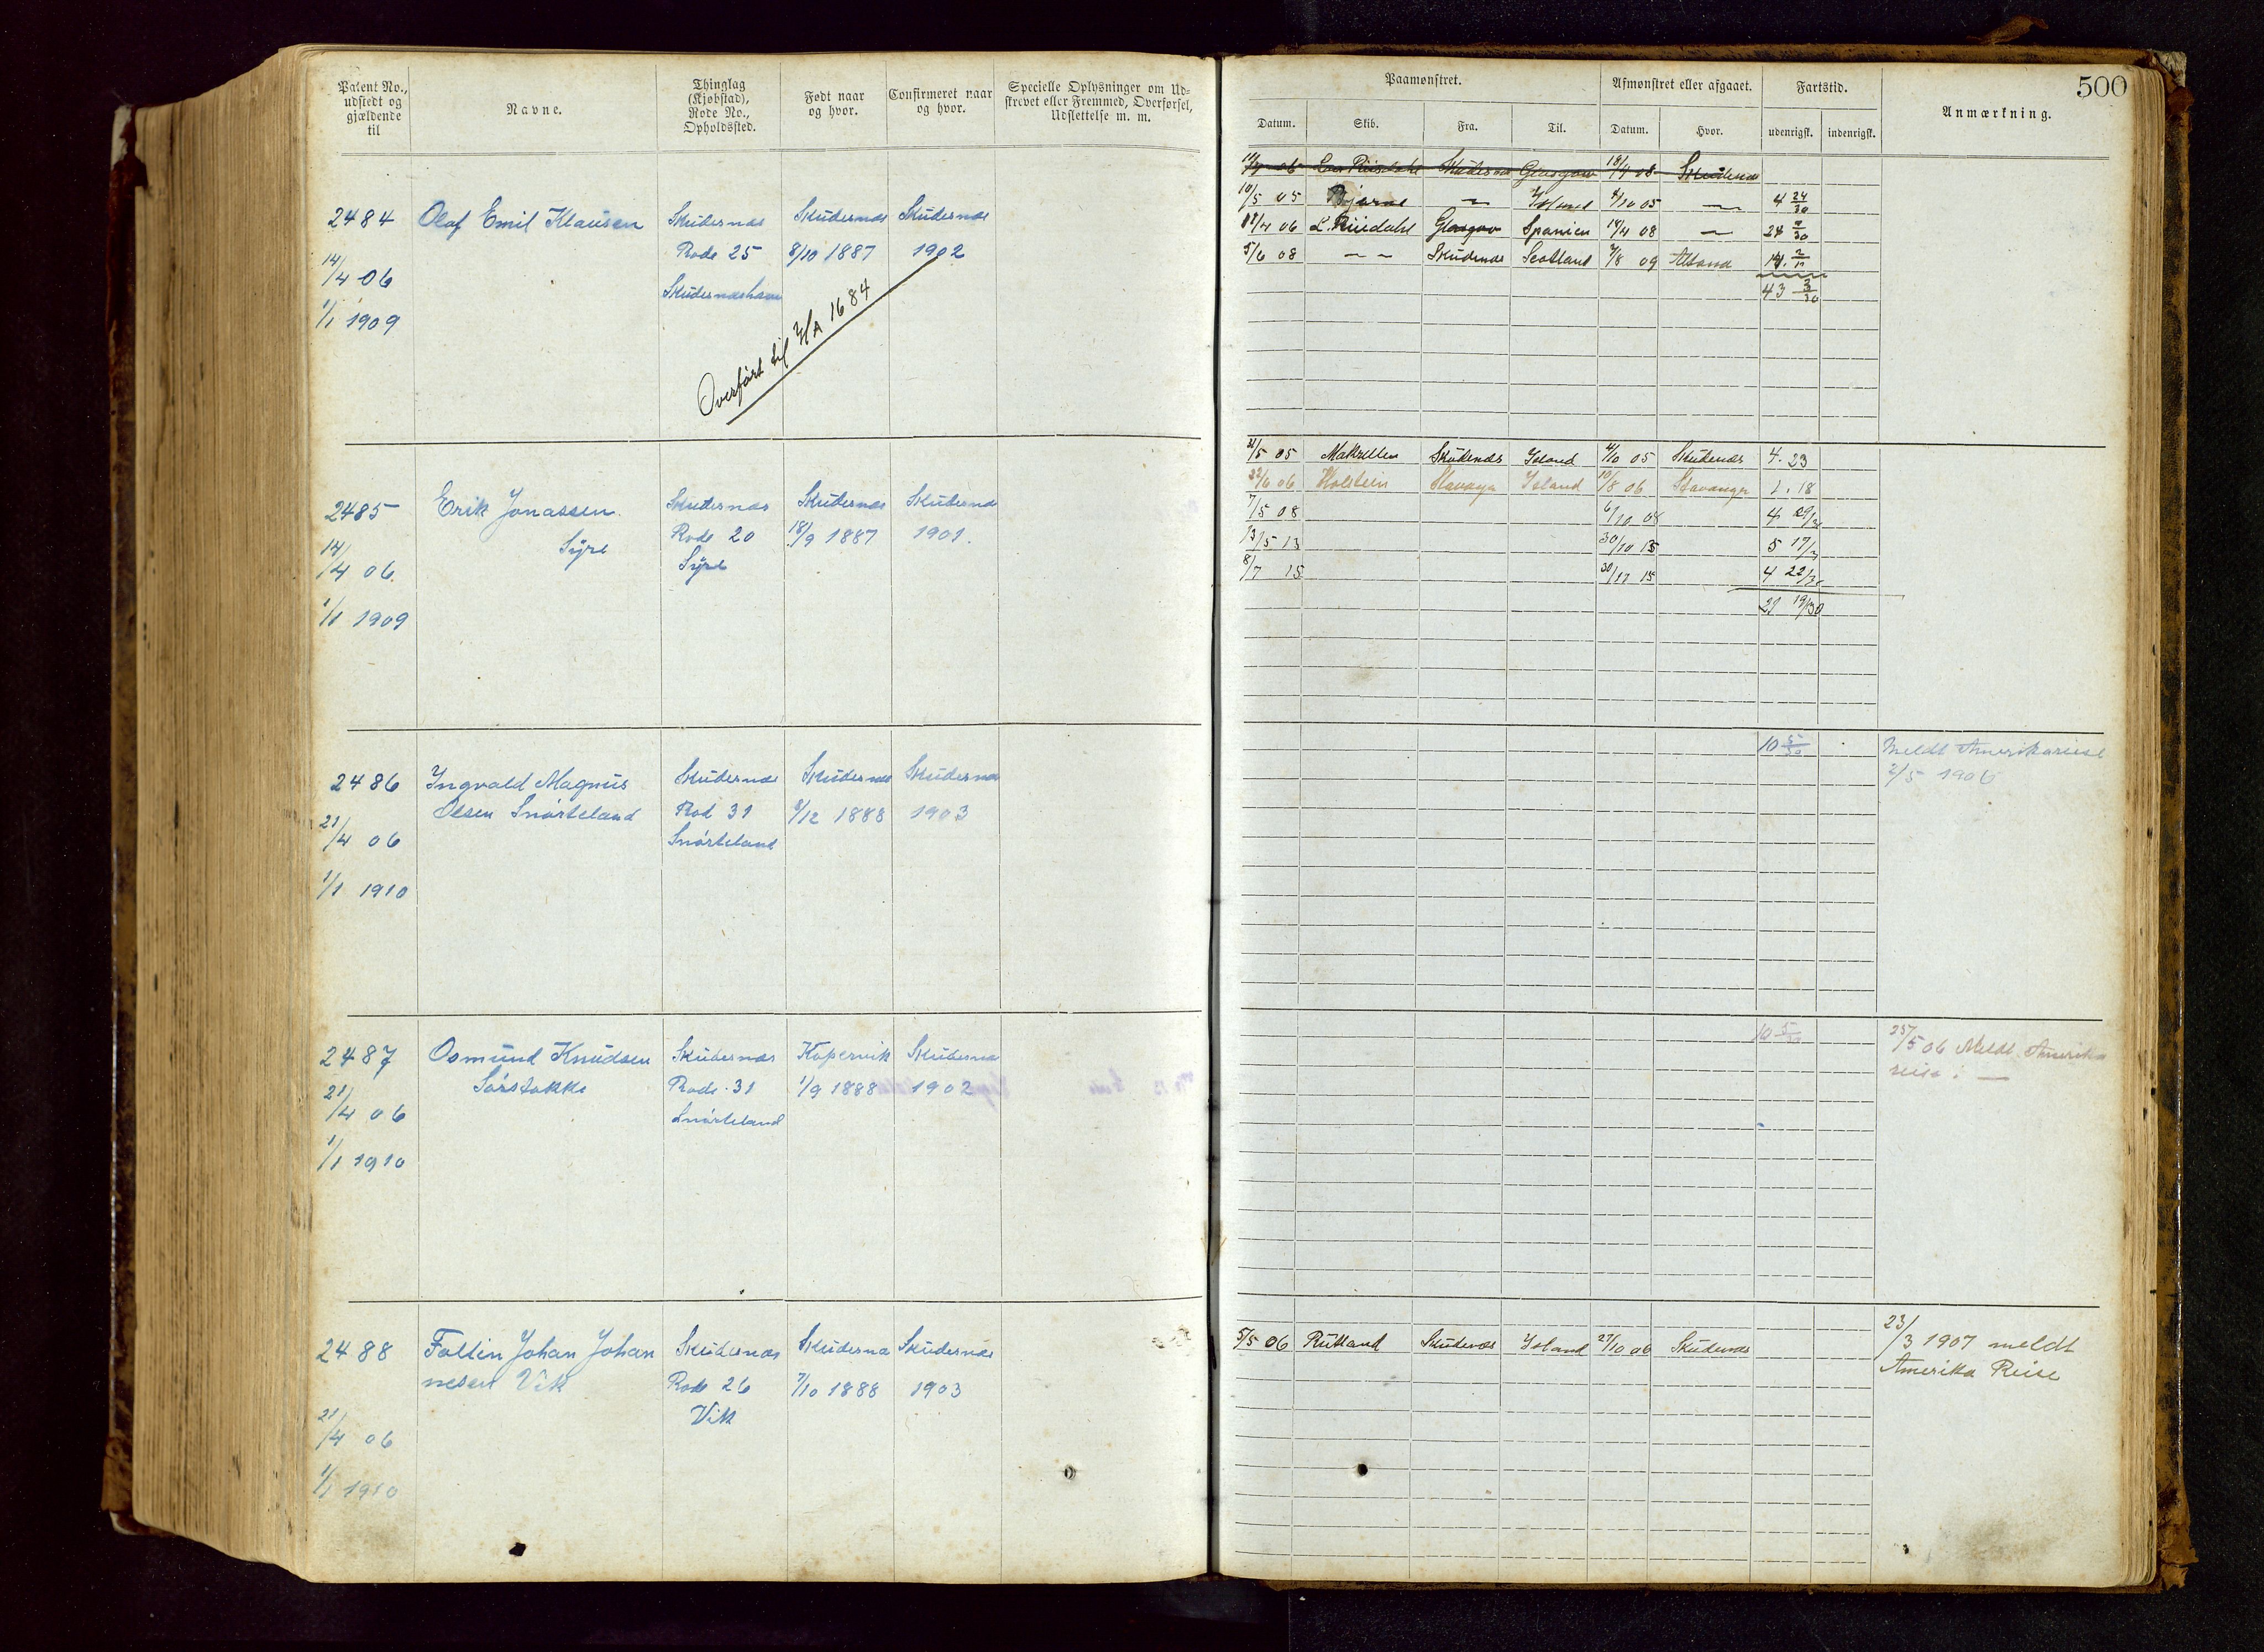 Patent No.,
udstedt og
gjældende
til
Navne.
Thinglag
(Kjøbstad),
Rode No.,
Opholdssted.
Født naar
og hvor.
Confirmeret naar
og hvor.
Specielle Oplysninger om Ud=
skrevet eller Fremmed, Overførsel,
Udslettelse m. m.
2484 Olaf Emil Klausen Skudesnæs Skudesnæs Skudesnæs
14/4 06 Rode 25 8/10 1887 1902
1/1 1909 Skudesnæshavn
Overført til H/A 1684
2485 Erik Jonassen Skudesnæs Skudesnæs Skudesnæs
14/4 06. Syre Rode 20 18/9 1887 1901.
1/1 1909 Syre
2486 Ingvald Magnus Skudesnæs Skudesnæs Skudesnæs
21/4 06 Olsen Snørteland Rod 31 9/12 1888 1903
1/1 1910 Snørteland
2487 Osmund Knudsen Skudesnæs Kopervik Skudesnæs
21/4 06 Sørstokke Rode 31 1/9 1888 1902
1/1 1910 Snørteland
2488 Faltin Johan Johan Skudesnæs Skudesnæs Skudesnæs
nesen Vik Rode 26 7/10 1888 1903
21/4 06 Vik
1/1 1910
500
Paamønstret.
Afmønstret eller afgaaet.
Fartstid.
Anmærkning.
Datum. Skib. Fra. Til. Datum. Hvor. udenrigsk. indenrigsk.
06 Skudesnæs Glasgow 18/4 08 Skudesnæs
10/5 05 Bjarne — Island 4/10 05 — 4 24/30
06 L. Riisdahl Glasgow Spanien 18/4 08 — 24
5/6 08 — — Skudesnæs Scotland 7/8 09 Altona 14.
43 3/30
31/5 05 Makrellen Skudenæs Island 4/10 05 Skudenæs 4. 23
22/6 06 Holstein Stavanger Island 10/8 06 Stavanger 1. 18
7/5 08 6/10 08 4 29/30
13/5 13 30/10 13 5 17/30
8/7 15 30/11 15 4 22/30
21 19/30
10 5/30 Meldt Amerikareise
2/5 1906
10 5/30 25/5 06 Meldt Amerika
reise: —
5/5 06 Rutland Skudenæs Island 27/10 06 Skudenæs 23/3 1907 meldt
Amerika Reise